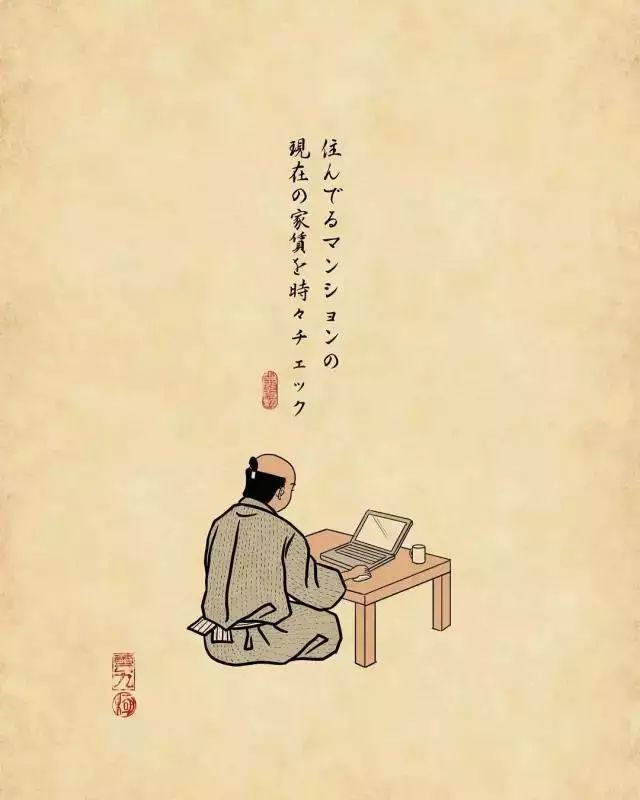 住んでるマンションの
現在の家賃を時々チェック